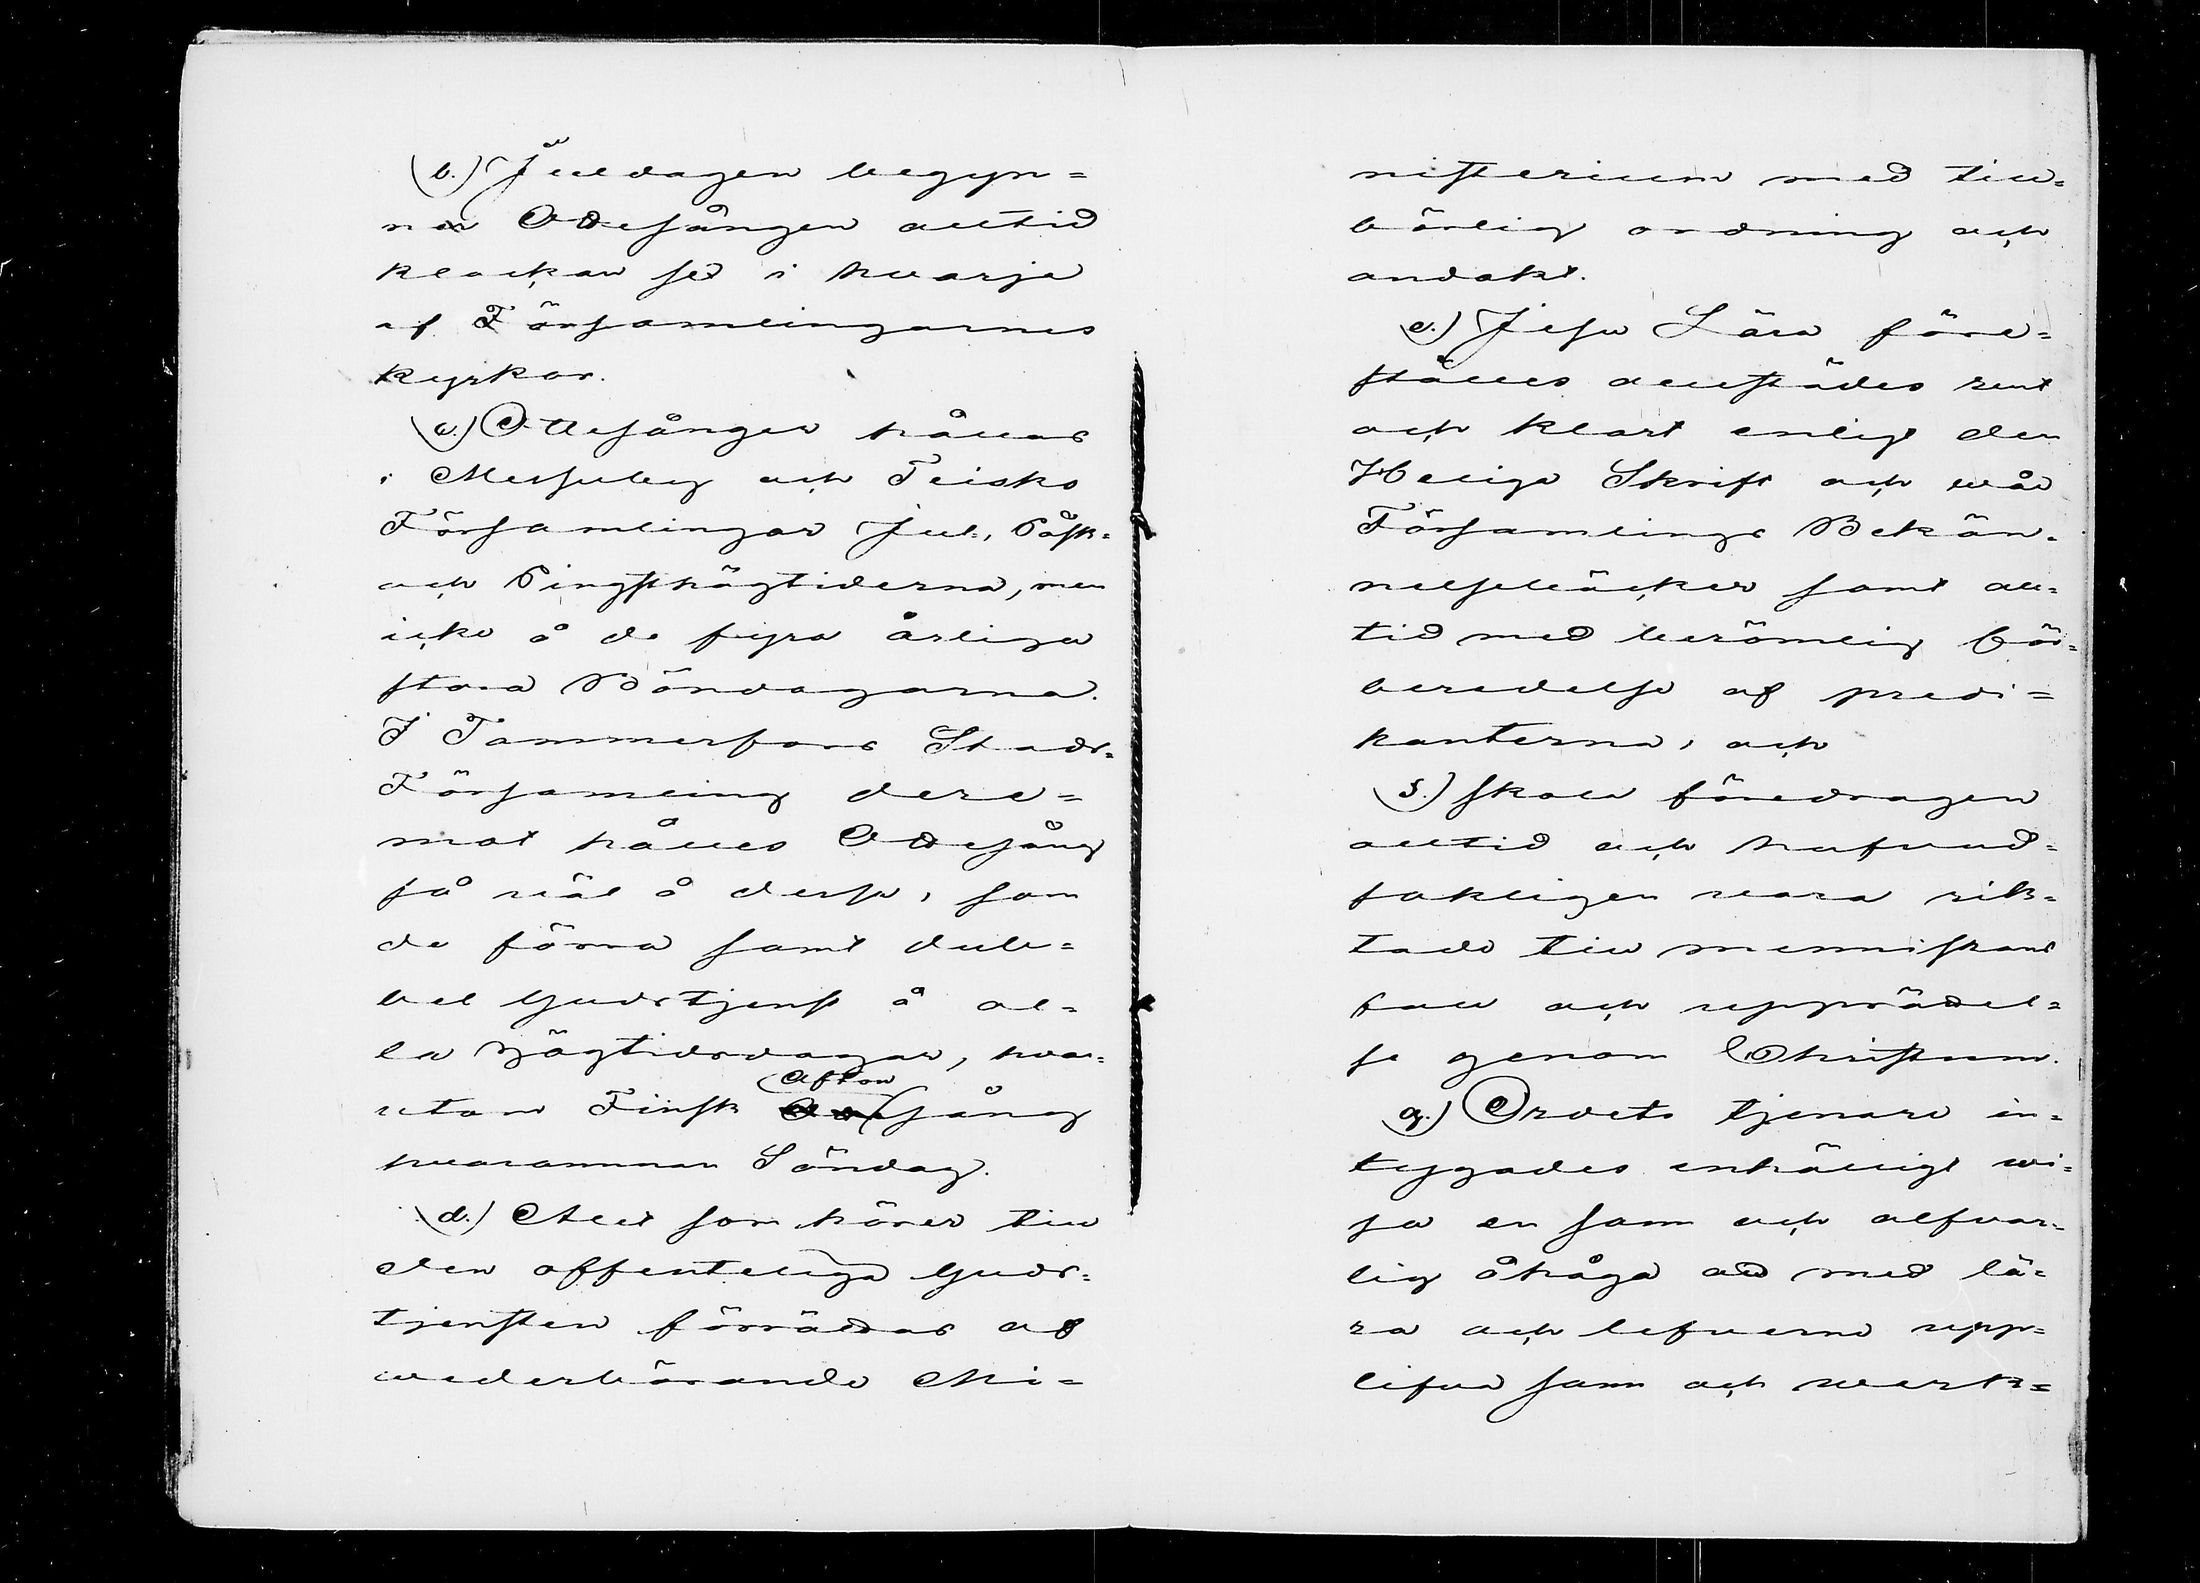 b.) Juldagen begyn=
nes Ottesången alltid
klockan sex i hvarje
af Församlingarnes
kyrkor.
c.) Ottesången hålles
i Messuby och Teisko
Församlingar Jul-, Påsk-
och Pingsthögtiderna, men
icke å de fyra årliga
stora Böndagarna.
I Tammerfors Stads-
Församling dere=
mot hålles Ottesång
så väl å dessa, som
de förra samt dub=
bel Gudstjenst å al=
la Högtidsdagar, hvar=
utom Finsk Aftonsång
hvarannan Söndag.
d.) Allt som hörer till
den offenteliga Guds=
tjensten förrättas af
wederbörande Mi=
nisterium med till=
börlig ordning och
andakt.
e.) Jesu Lära före=
ställes allestädes rent
och klart enligt den
Heliga Skrift och wår
Församlings Bekän=
nelseböcker samt all=
tid med berömlig för=
beredelse af predi=
kanterna, och
f.) skola föredragen
alltid och hufvud=
sakligen vara rik=
tade till menniskans
fall och upprättel=
se genom Christum.
g.) Ordets tjenare in=
tygades enhälligt wi=
sa en sann och alfvar=
lig åhåga att med lä=
ra och lefverne upp=
lifva sann och werk=